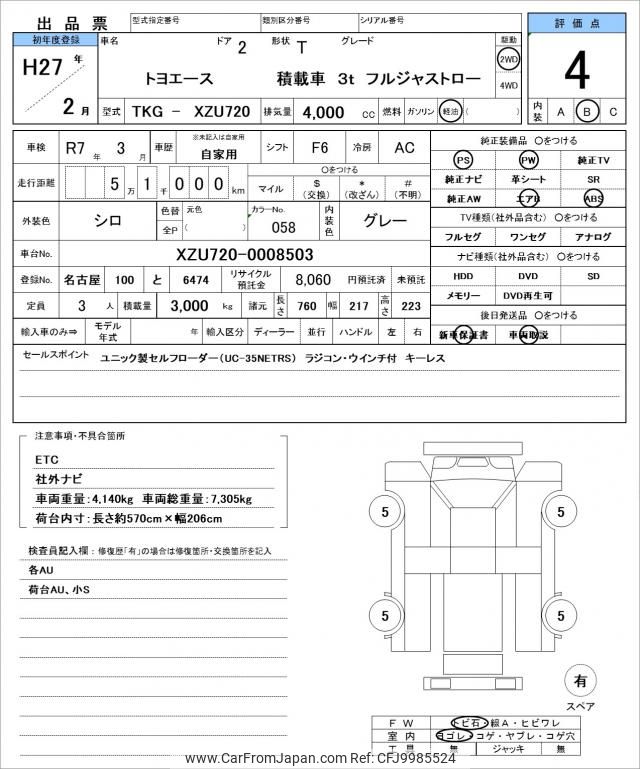 出品票 型式指定番号 類別区分番号 シリアル番号 評価点
初年度登録 車名 ドア 2 形状 T グレード 駆動
H27 年 トヨエース 積載車 3t フルジャストロー 2WD 4
2 月 4WD
型式 TKG - XZU720 排気量 4,000 cc 燃料 ガソリン 軽油 ( ) 内装 A B C
車検 R7 年 3 月 車歴 ※未記入は自家用 自家用 シフト F6 冷房 AC 純正装備品 〇をつける
PS PW 純正TV
走行距離 5 万 1 千 0 0 0 km 〇をつける
マイル $ (交換) * (改ざん) # (不明)
純正ナビ 革シート SR
純正AW エアB ABS
外装色 シロ 色替 元色 全P ( ) カラーNo. 058 内装色 グレー
TV種類(社外品含む) 〇をつける
フルセグ ワンセグ アナログ
車台No. XZU720-0008503 ナビ種類(社外品含む) 〇をつける
登録No. 名古屋 100 と 6474 リサイクル預託金 8,060 円預託済 未預託 HDD DVD SD
定員 3 人 積載量 3,000 kg 諸元 長さ 760 幅 217 高さ 223 メモリー DVD再生可
後日発送品 〇をつける
輸入車のみ⇒ モデル年式 年 輸入区分 ディーラー 並行 ハンドル 左 右 新車保証書 車両取説
セールスポイント ユニック製セルフローダー(UC-35NETRS) ラジコン・ウインチ付 キーレス
注意事項・不具合箇所
ETC
社外ナビ
車両重量:4,140kg 車両総重量:7,305kg
荷台内寸:長さ約570cm×幅206cm
検査員記入欄:修復歴「有」の場合は修復箇所・交換箇所を記入
各AU
荷台AU、小S
5 5
5 5
有
スペア
FW トビ石・線A・ヒビワレ
室内 ヨゴレ・コゲ・ヤブレ・コゲ穴
工具 無 ジャッキ 無
www.CarFromJapan.com Ref No. CFJ9985524